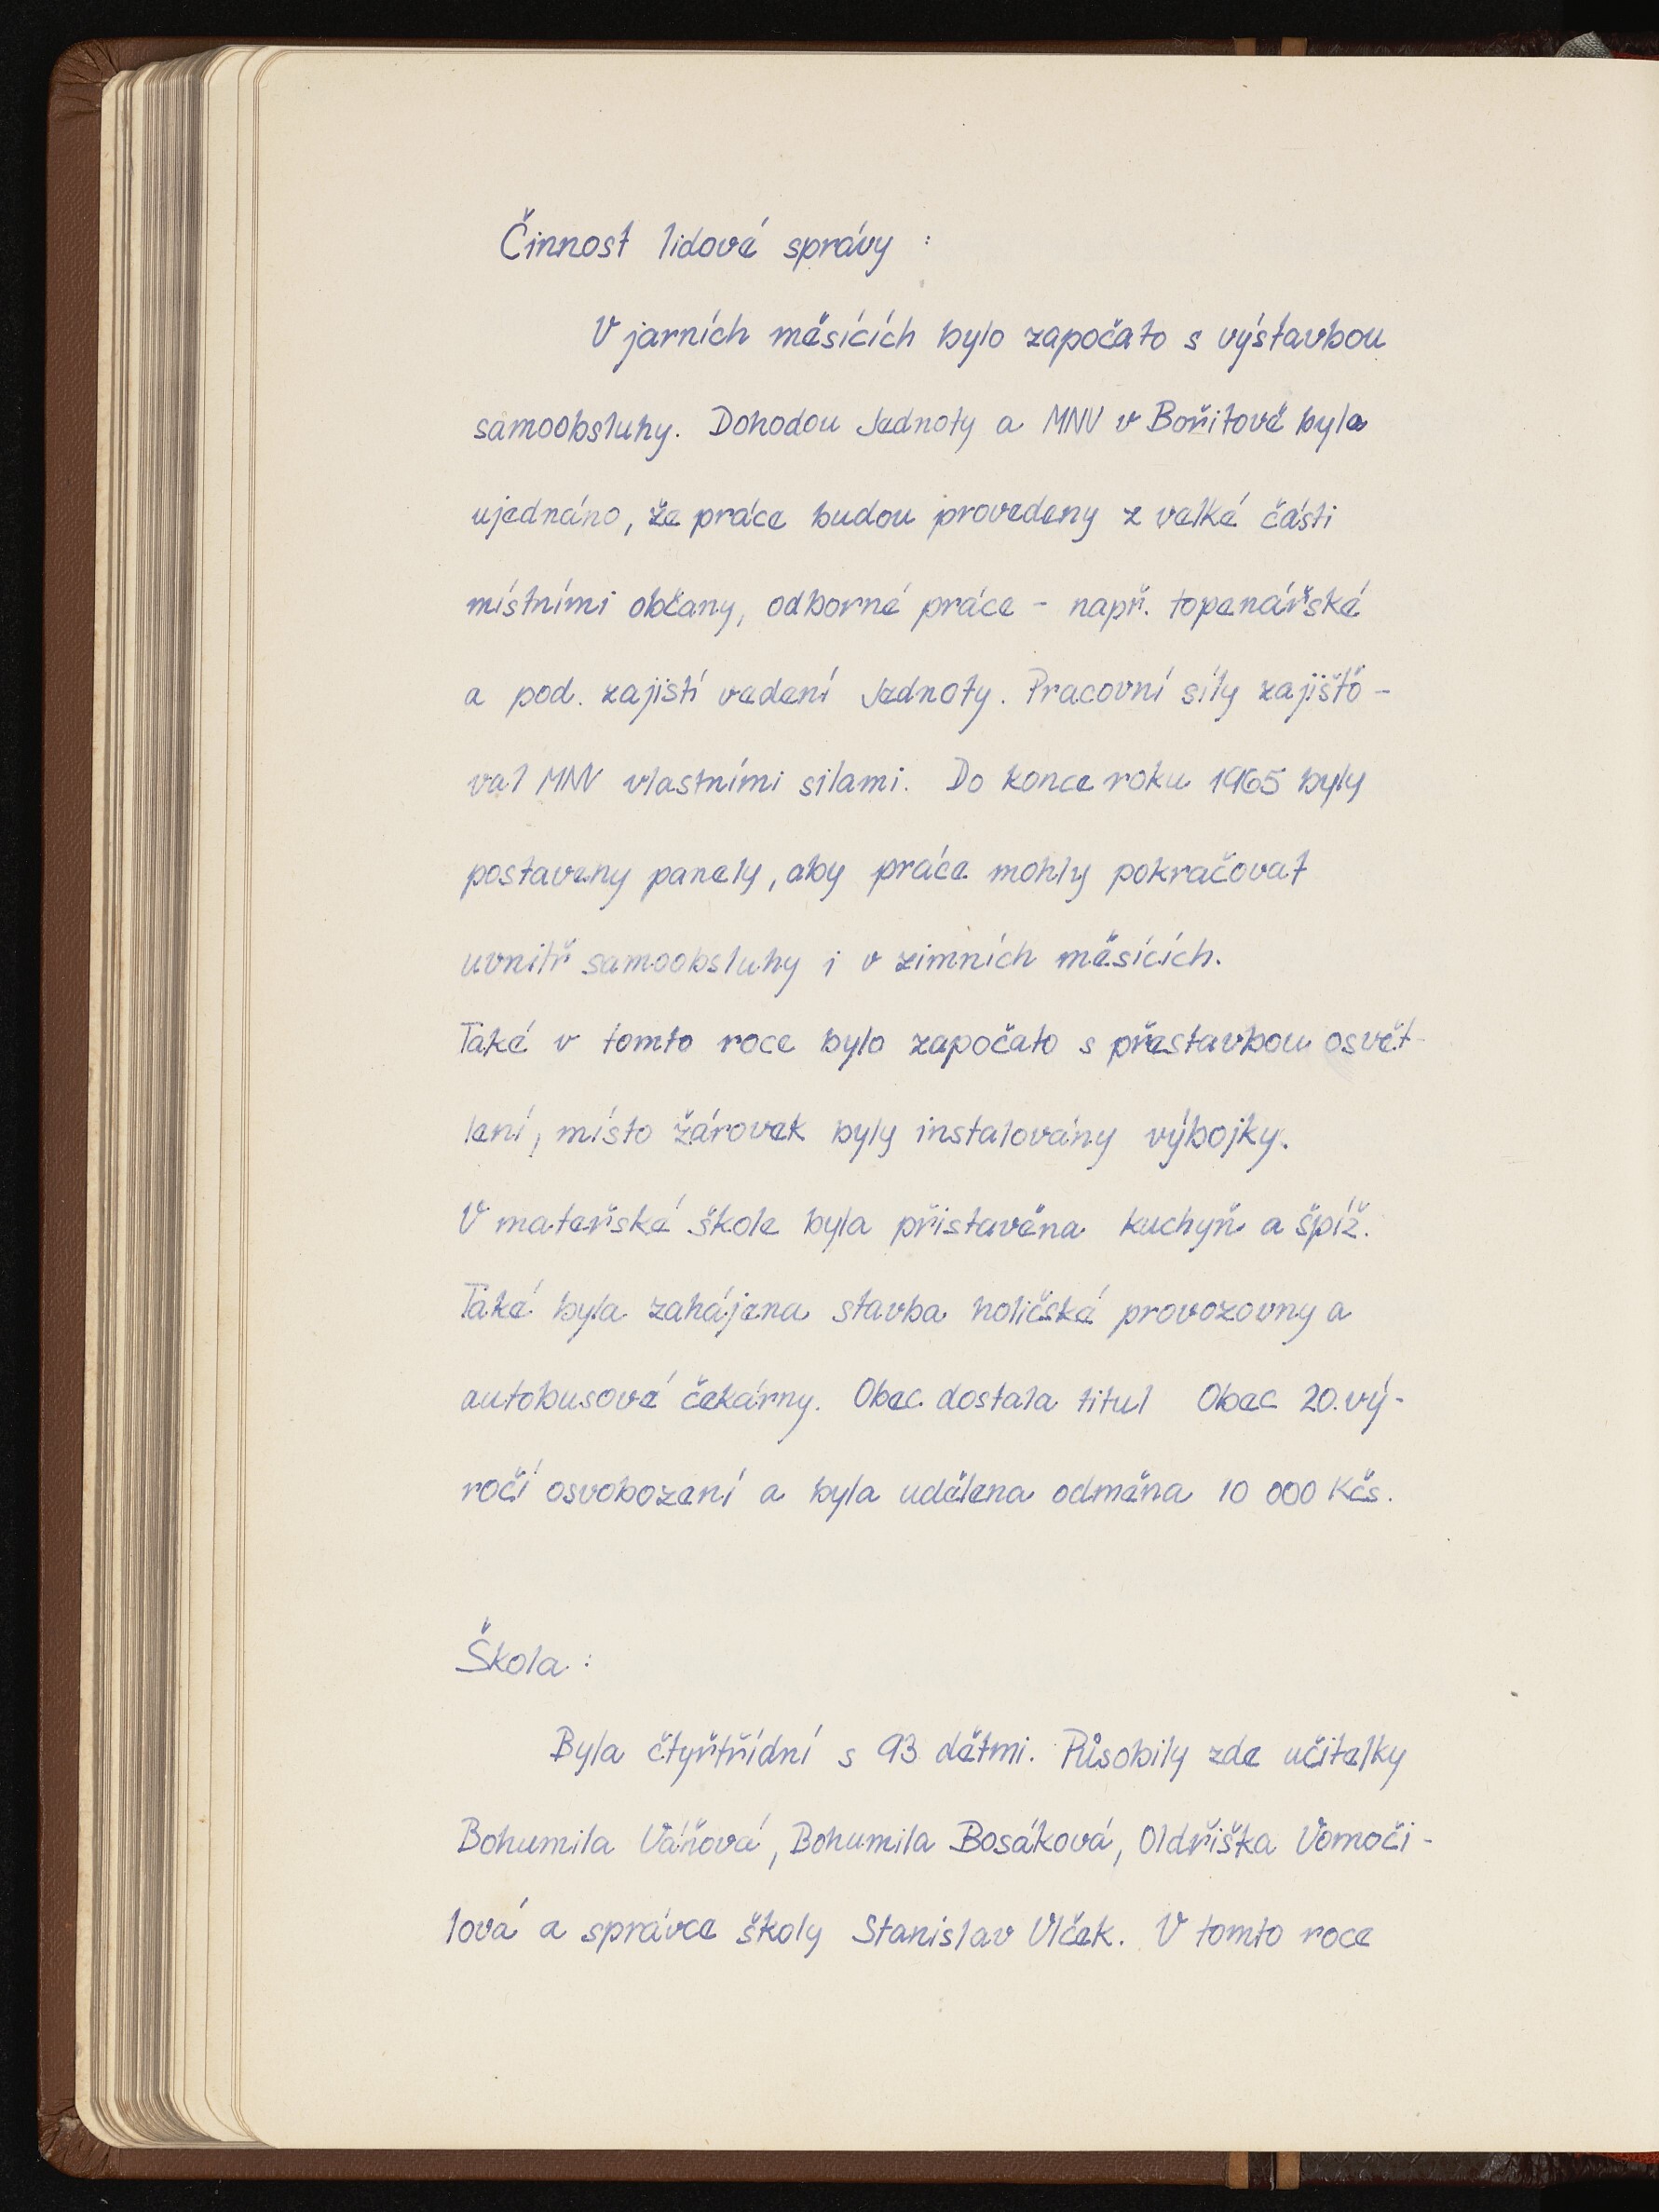 Činnost lidové správy :
V jarních měsících bylo započato s výstavbou
samoobsluhy. Dohodou Jednoty a MNV v Bořitově byla
ujednáno, že práce budou provedeny z velké části
místními občany, odborné práce - např. topenářské
a pod. zajistí vedení Jednoty. Pracovní síly zajišťo-
val MNV vlastními silami. Do konce roku 1965 byly
postaveny panely, aby práce mohly pokračovat
uvnitř samoobsluhy i v zimních měsících.
Také v tomto roce bylo započato s přestavbou osvět-
lení, místo žárovek byly instalovány výbojky.
V mateřské škole byla přistavěna kuchyň a špíž.
Také byla zahájena stavba holičské provozovny a
autobusové čekárny. Obec dostala titul Obec 20. vý-
ročí osvobození a byla udělena odměna 10 000 Kčs.
Škola :
Byla čtyřtřídní s 93 dětmi. Působily zde učitelky
Bohumila Váňová, Bohumila Bosáková, Oldřiška Vomoči-
lová a správce školy Stanislav Vlček. V tomto roce